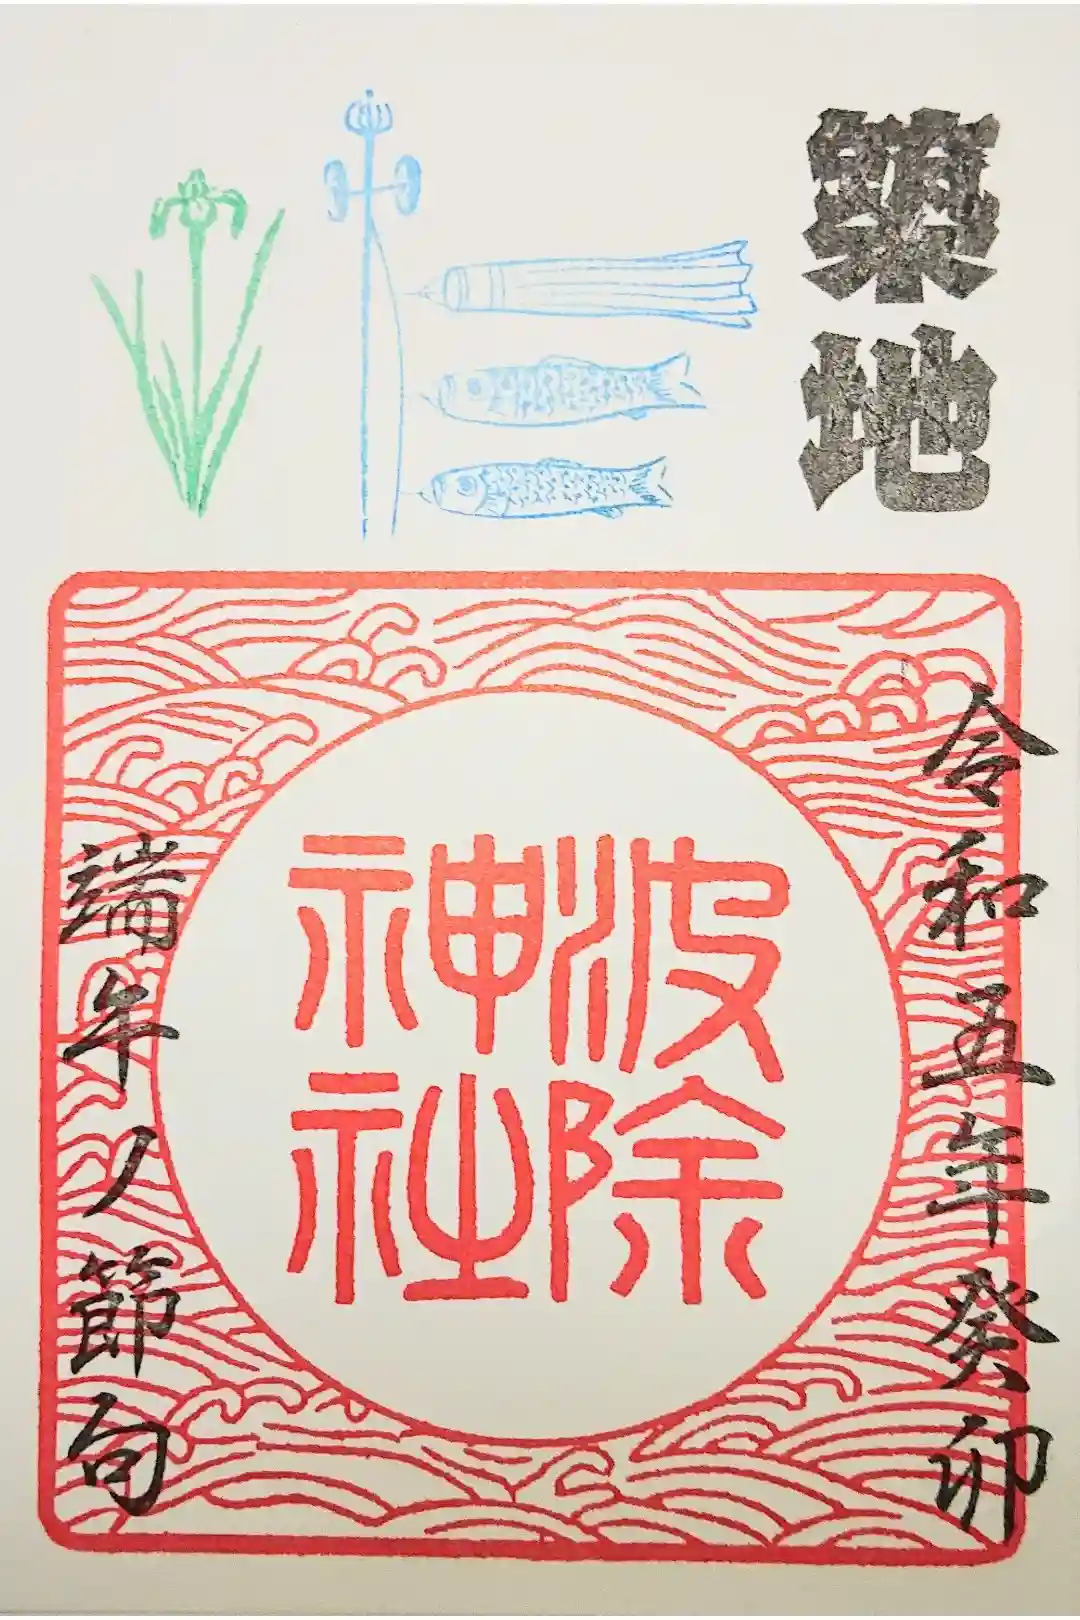 築地
令和五年癸卯
波除
神社
端午ノ節句